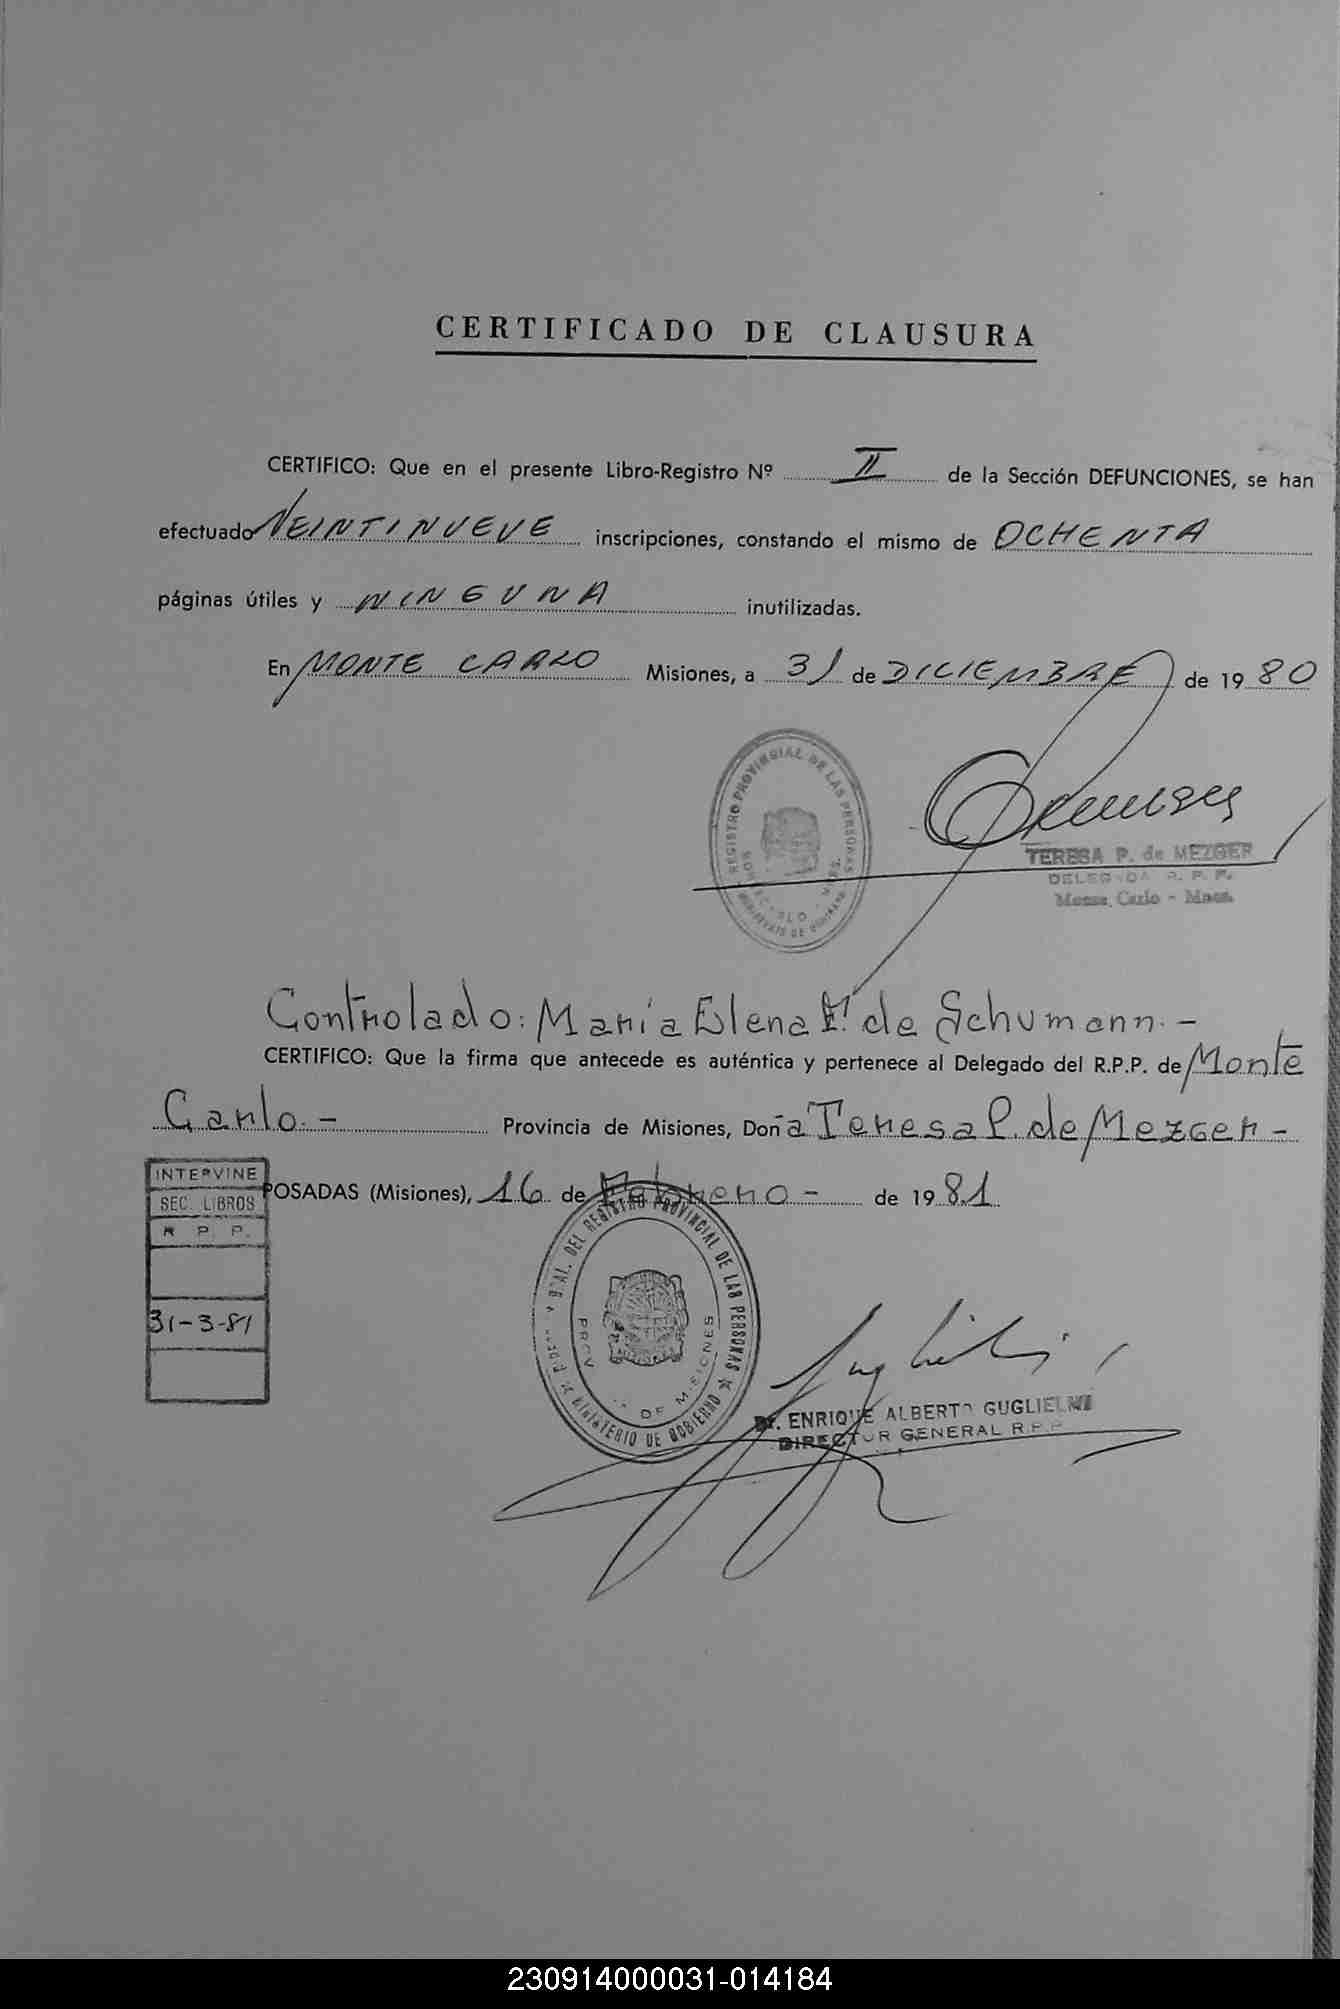 CERTIFICADO DE CLAUSURA
CERTIFICO: Que en el presente Libro-Registro Nº II de la Sección DEFUNCIONES, se han
efectuado VEINTINUEVE inscripciones, constando el mismo de OCHENTA
páginas útiles y NINGUNA inutilizadas.
En MONTE CARLO Misiones, a 31 de DICIEMBRE de 1980
REGISTRO PROVINCIAL DE LAS PERSONAS
TERESA P. de MEZGER
DELEGADA R. P. P.
Monte Carlo - Mnes.
Controlado: María Elena de Schumann.-
CERTIFICO: Que la firma que antecede es auténtica y pertenece al Delegado del R.P.P. de Monte
Carlo.- Provincia de Misiones, Doña Teresa P. de Mezger-
POSADAS (Misiones), 16 de Febrero- de 1981
INTERVINE
SEC. LIBROS
R. P. P.
31-3-81
GRAL. DEL REGISTRO PROVINCIAL DE LAS PERSONAS
MINISTERIO DE GOBIERNO
PROV. DE MISIONES
Dr. ENRIQUE ALBERTO GUGLIELMI
DIRECTOR GENERAL R.P.P.
230914000031-014184